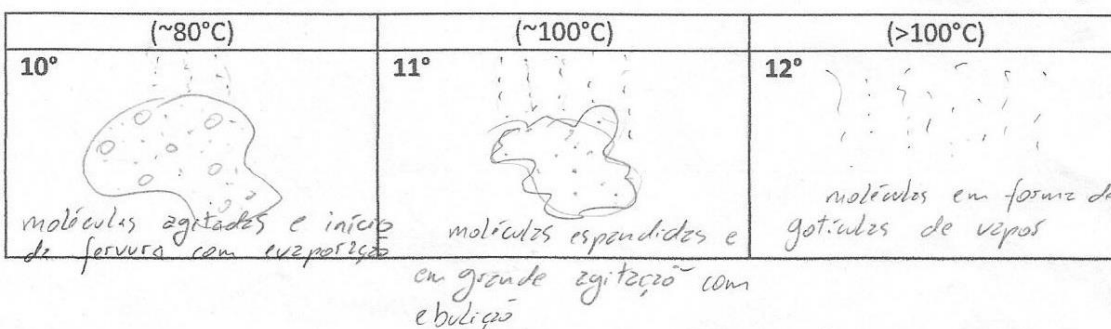 (~80°C)
(~100°C)
(>100°C)
10°
moléculas agitadas e início
de fervura com evaporação
11°
moléculas espandidas e
em grande agitação com
ebulição
12°
moléculas em forma de
gotículas de vapor